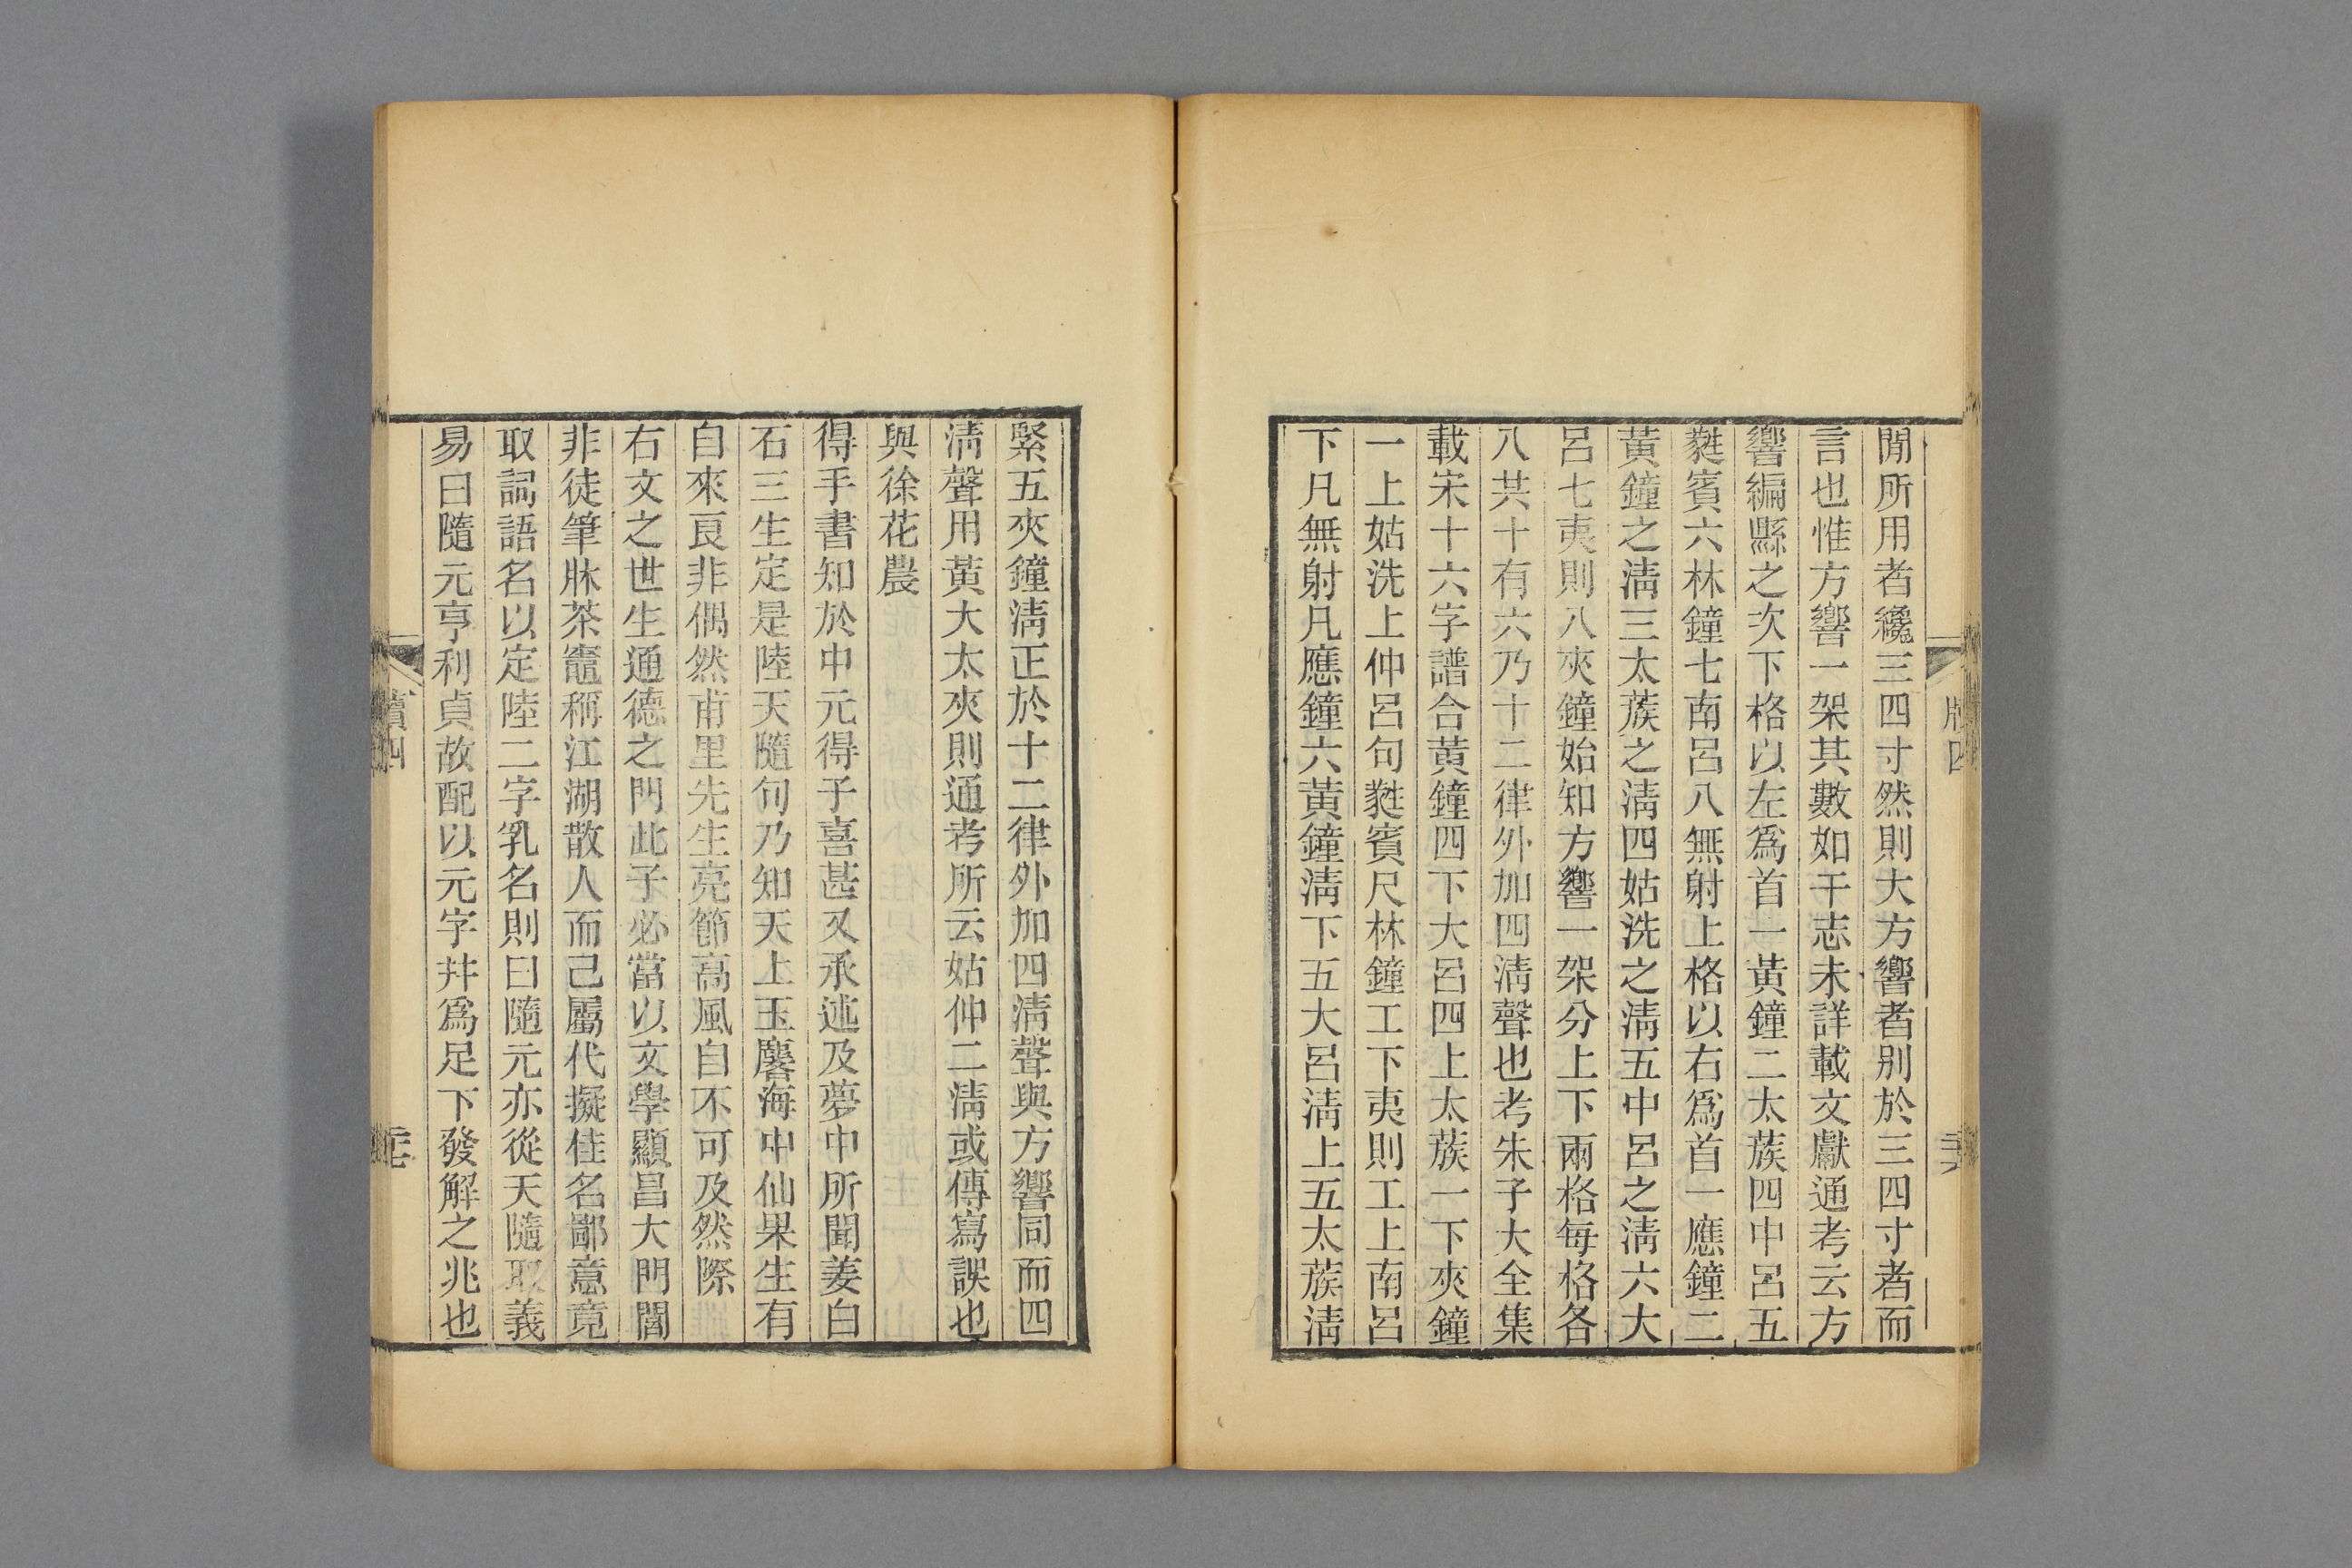 閒所用者纔三四寸然則大方響者别於三四寸者而
言也惟方響一架其數如干志未詳載文獻通考云方
響編縣之次下格以左爲首一黃鐘二太蔟四中呂五
蕤賓六林鐘七南呂八無射上格以右爲首一應鐘二
黃鐘之淸三太蔟之淸四姑洗之淸五中呂之淸六大
呂七夷則八夾鐘始知方響一架分上下兩格每格各
八共十有六乃十二律外加四淸聲也考朱子大全集
載宋十六字譜合黃鐘四下大呂四上太蔟一下夾鐘
一上姑洗上仲呂句蕤賓尺林鐘工下夷則工上南呂
下凡無射凡應鐘六黃鐘淸下五大呂淸上五太蔟淸
緊五夾鐘淸正於十二律外加四淸聲與方響同而四
淸聲用黃大太夾則通考所云姑仲二淸或傳寫誤也
與徐花農
得手書知於中元得子喜甚又承述及夢中所聞姜白
石三生定是陸天隨句乃知天上玉麐海中仙果生有
自來良非偶然甫里先生亮節高風自不可及然際
右文之世生通德之門此子必當以文學顯昌大門閭
非徒筆牀茶竈稱江湖散人而已屬代擬佳名鄙意竟
取詞語名以定陸二字乳名則曰隨元亦從天隨取義
易曰隨元亨利貞故配以元字幷爲足下發解之兆也
牘四